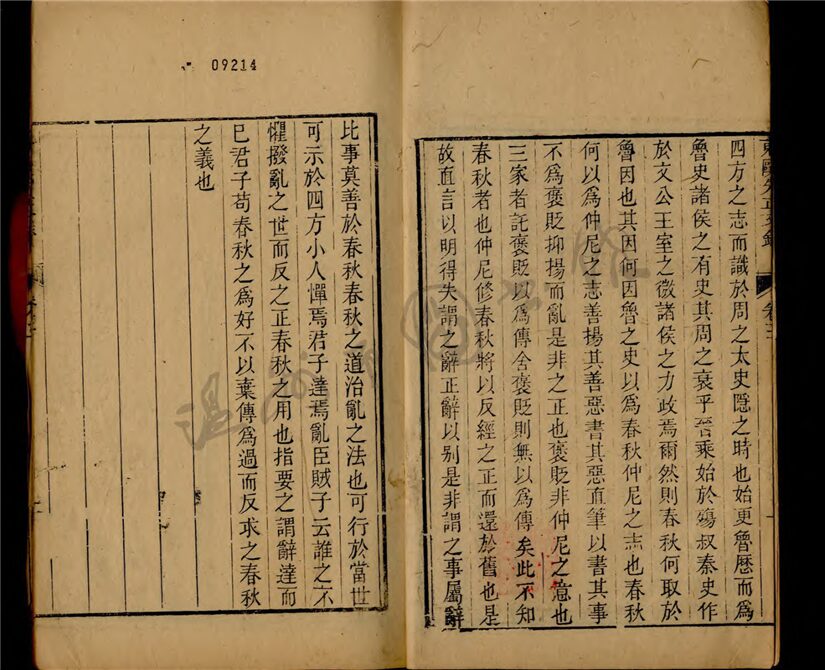 09214
四方之志而識於周之太史隱之時也始更魯曆而為
魯史諸侯之有史其周之衰乎晉乘始於殤叔秦史作
於文公王室之微諸侯之力政焉爾然則春秋何取於
魯因也其因何因魯之史以為春秋仲尼之志也春秋
何以為仲尼之志善揚其善惡書其惡直筆以書其事
不為褒貶抑揚而亂是非之正也褒貶非仲尼之意也
三家者託褒貶以為傳舍褒貶則無以為傳矣此不知
春秋者也仲尼修春秋將以反經之正而還於舊也是
故直言以明得失謂之辭正辭以別是非謂之事屬辭
比事莫善於春秋春秋之道治亂之法也可行於當世
可示於四方小人憚焉君子達焉亂臣賊子云誰之不
懼撥亂之世而反之正春秋之用也指要之謂辭達而
巳君子苟春秋之為好不以棄傳為過而反求之春秋
之義也